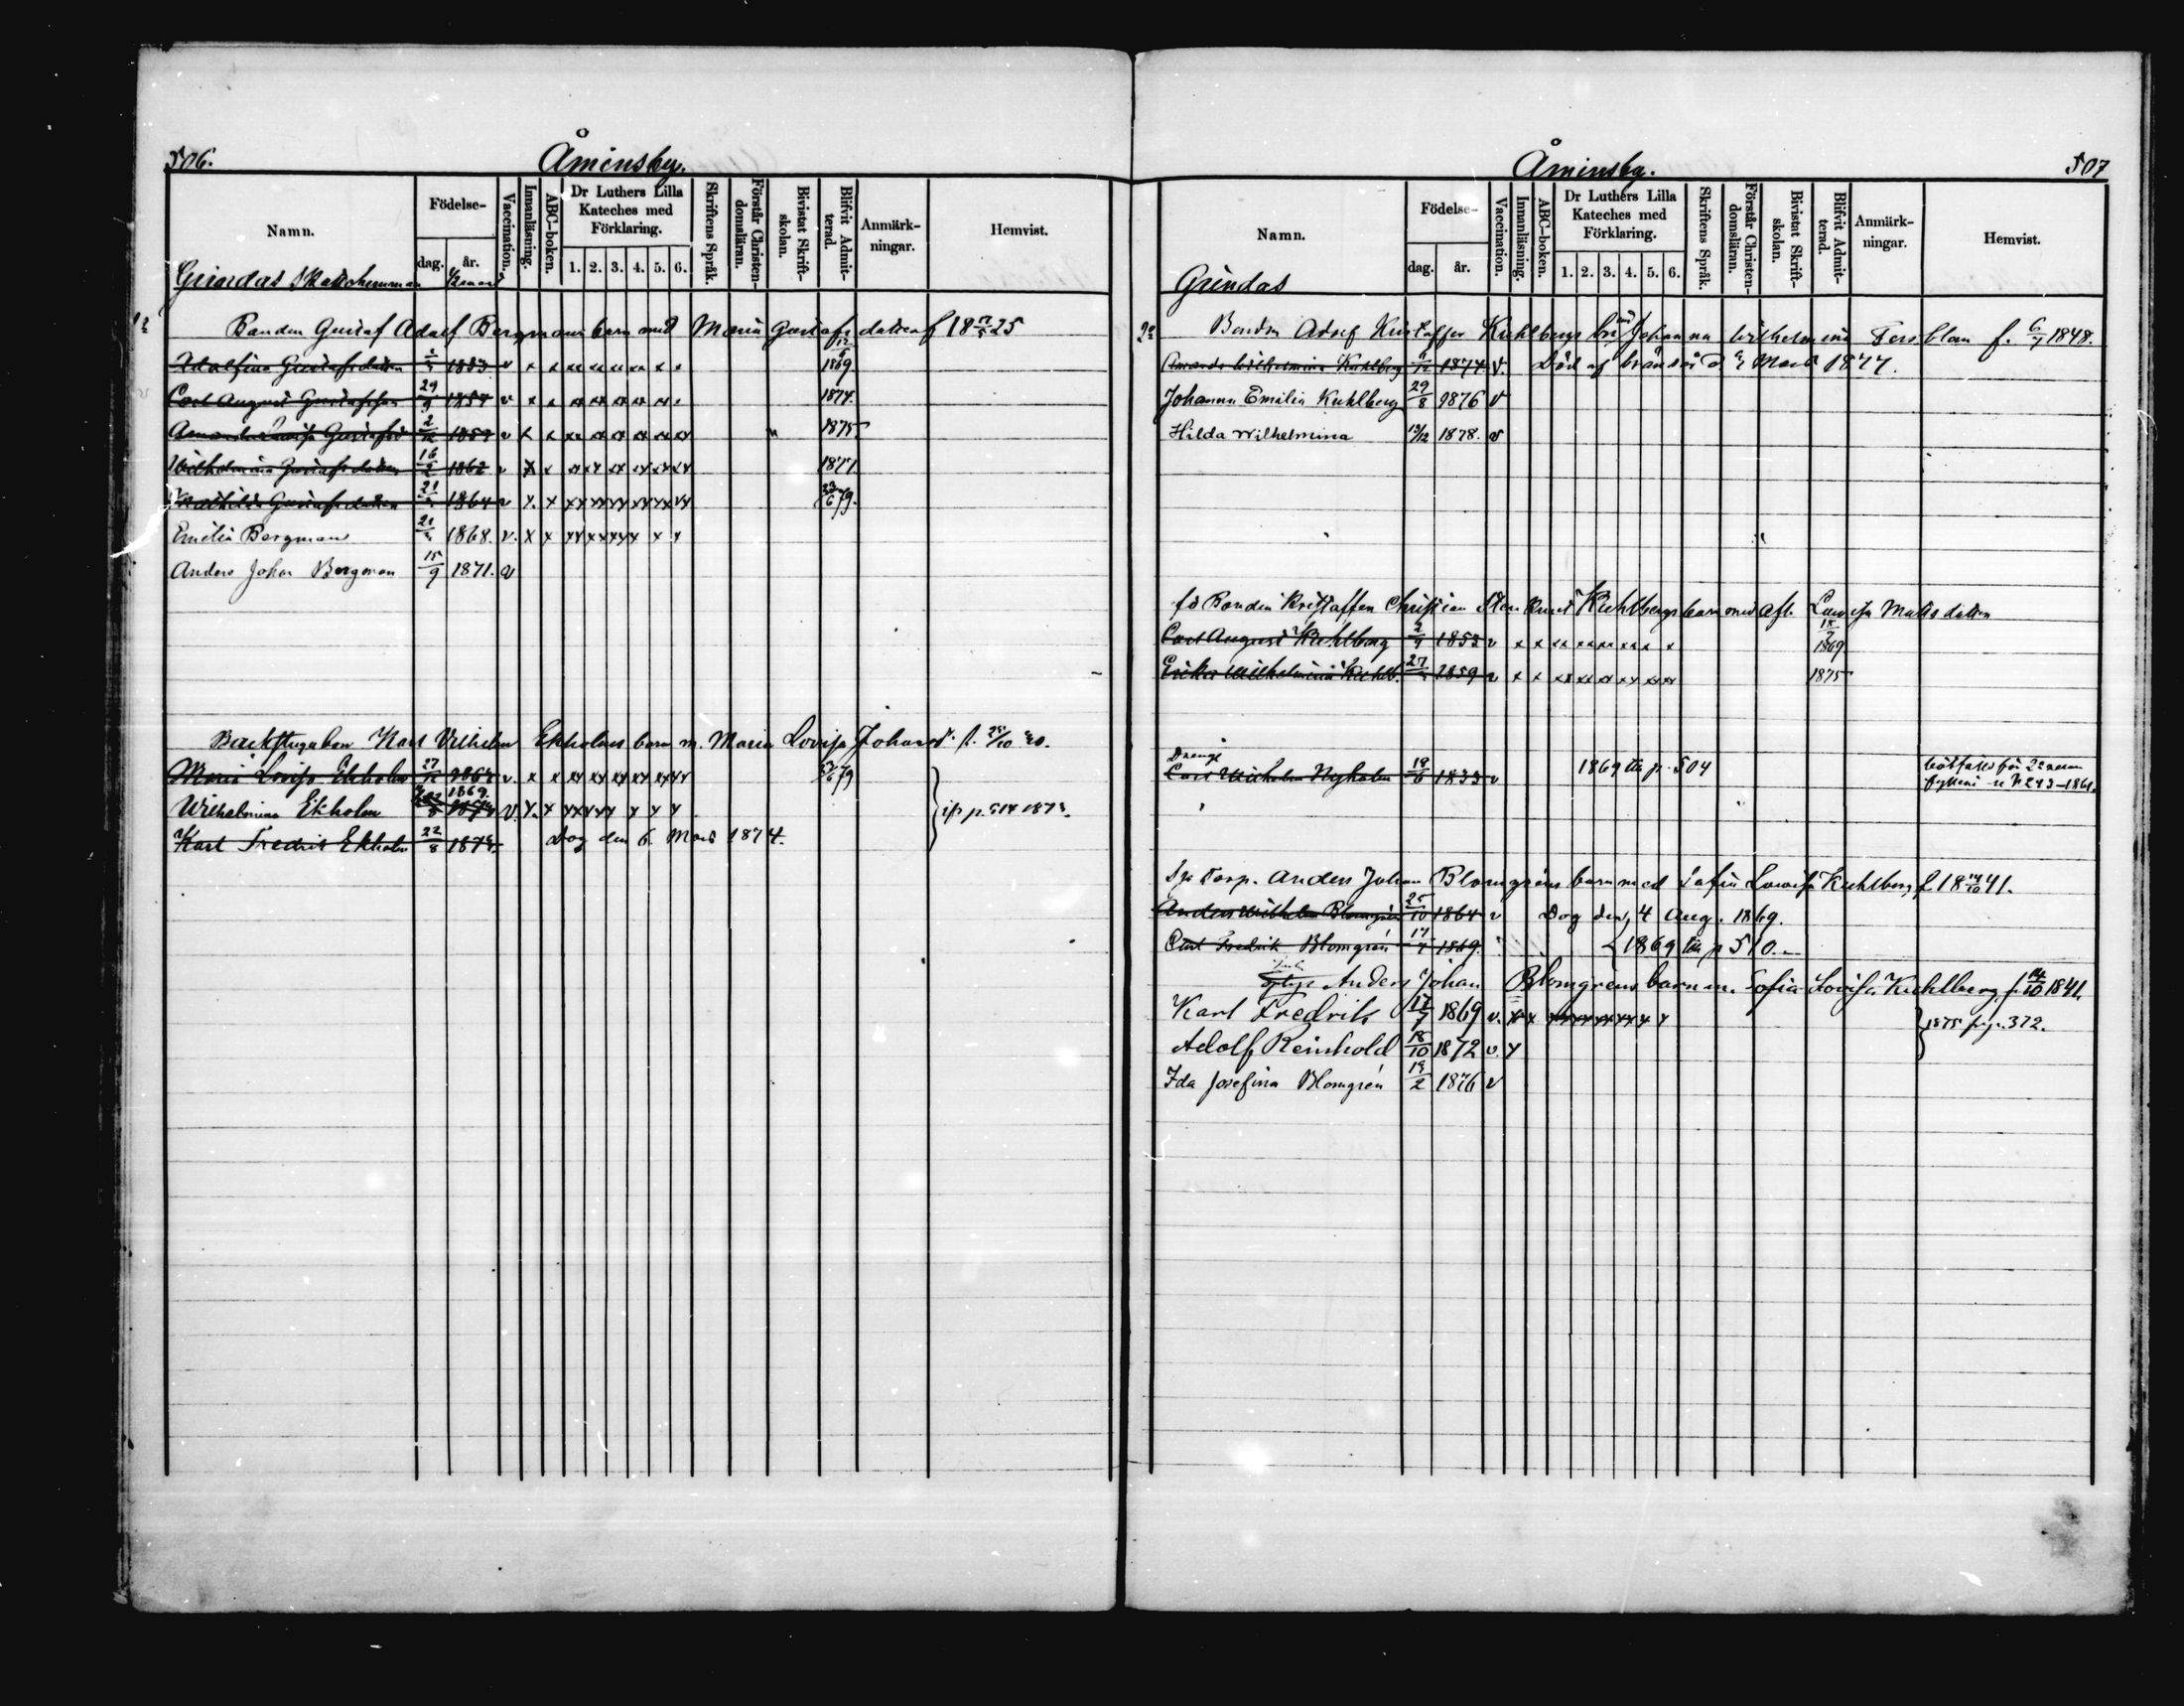 506.
Åminsby.
Namn.
Födelse-
dag.
år.
Vaccination.
Innanläsning.
ABC-boken.
Dr Luthers Lilla Kateches med Förklaring.
1. 2. 3. 4. 5. 6.
Skriftens Språk.
Förstår Christendomsläran.
Bivistat Skriftskolan.
Blifvit Admitterad.
Anmärkningar.
Hemvist.
Grindas Skattehemman
Bonden Gustaf Adolf Bergmans barn med Maria Gustafsdotter f 18 25
Adolfina Gustafsdotter 1853 v x x xx xx xx xx x x 1869
Carl August Gustafsson 29/9 1857 v x x xx xx xx xx xx x 1874.
Amanda Lovisa Gustafsd 2/12 1859 v x x xx xx xx xx xx xx 1875
Wilhelmina Gustafsdotter 16/2 1862 v x x xx xx xx xx xx xx 1877
Mathilda Gustafsdotter 1864 v x. x xx xx xx xx xx xx 23/6 79.
Emilia Bergman 1868. v. x x xx xx xx x x x
Anders Johan Bergman 15/9 1871. v
Backstugukarl Karl Vilhelm Ekholms barn m. Maria Lovisa Johansd. f. 25/10 40.
Maria Lovisa Ekholm 27/12 1864 v. x x xx xx xx xx xx xx 79
Wilhelmina Ekholm 1869. v. x. x xx xx xx x x x
ifr p. 514 1873.
Karl Fredrik Ekholm 22/8 1873. Dog den 6. Mars 1874.
Åminsby.
507
Namn.
Födelse-
dag.
år.
Vaccination.
Innanläsning.
ABC-boken.
Dr Luthers Lilla Kateches med Förklaring.
1. 2. 3. 4. 5. 6.
Skriftens Språk.
Förstår Christendomsläran.
Bivistat Skriftskolan.
Blifvit Admitterad.
Anmärkningar.
Hemvist.
Grindas
Bonden Adolf Kristoffer Kuhlbergs Johanna Wilhelmina f. 6/7 1848.
Amanda Wilhelmina Kuhlberg 1874 v. Död af Mars 1877.
Johanna Emilia Kuhlberg 29/8 1876 v
Hilda Wilhelmina 13/12 1878. v
fd Bonden Kristoffer Christian Kuhlbergs barn med afl. Lovisa Matsdotter
Carl August Kuhlberg 2/9 1853 v x x xx xx xx xx x x 1869
Erika Wilhelmina Kuhlb. 1859 v x x xx xx xx xx xx 1875
Dreng
Carl Wilhelm Nyholm 19/6 1833 v 1869 till p. 504
Anders Johan Blomgrens barn med Sofia Lovisa Kuhlberg f. 18 14/10 41.
Anders Wilhelm Blomgren 25/10 1864 v Dog den 4 Aug. 1869.
Carl Fredrik Blomgren 17/7 1869. 1869 till p 510.
Anders Johan Blomgrens barn m. Sofia Lovisa Kuhlberg f. 14/10 1841.
Karl Fredrik 17/7 1869 v. x x xx xx xx xx x x
1875 fr. p. 372.
Adolf Reinhold 18/10 1872 v. x
Ida Josefina Blomgren 19/2 1876 v